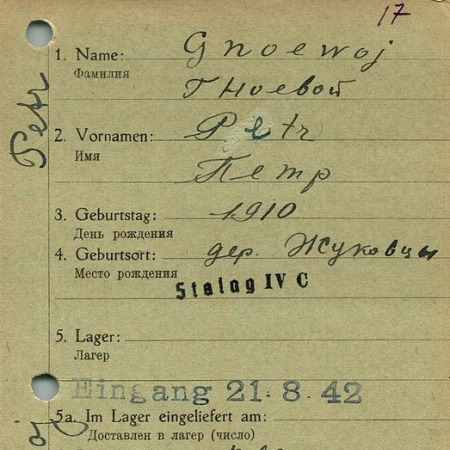 17
1. Name: Gnoewoj
Фамилия Гноевой
2. Vornamen: Petr
Имя Петр
3. Geburtstag: 1910
День рождения
4. Geburtsort: дер. Жуковцы
Место рождения
Stalag IV C
5. Lager:
Лагер
Eingang 21. 8. 42
5a. Im Lager eingeliefert am:
Доставлен в лагер (число)
Petr